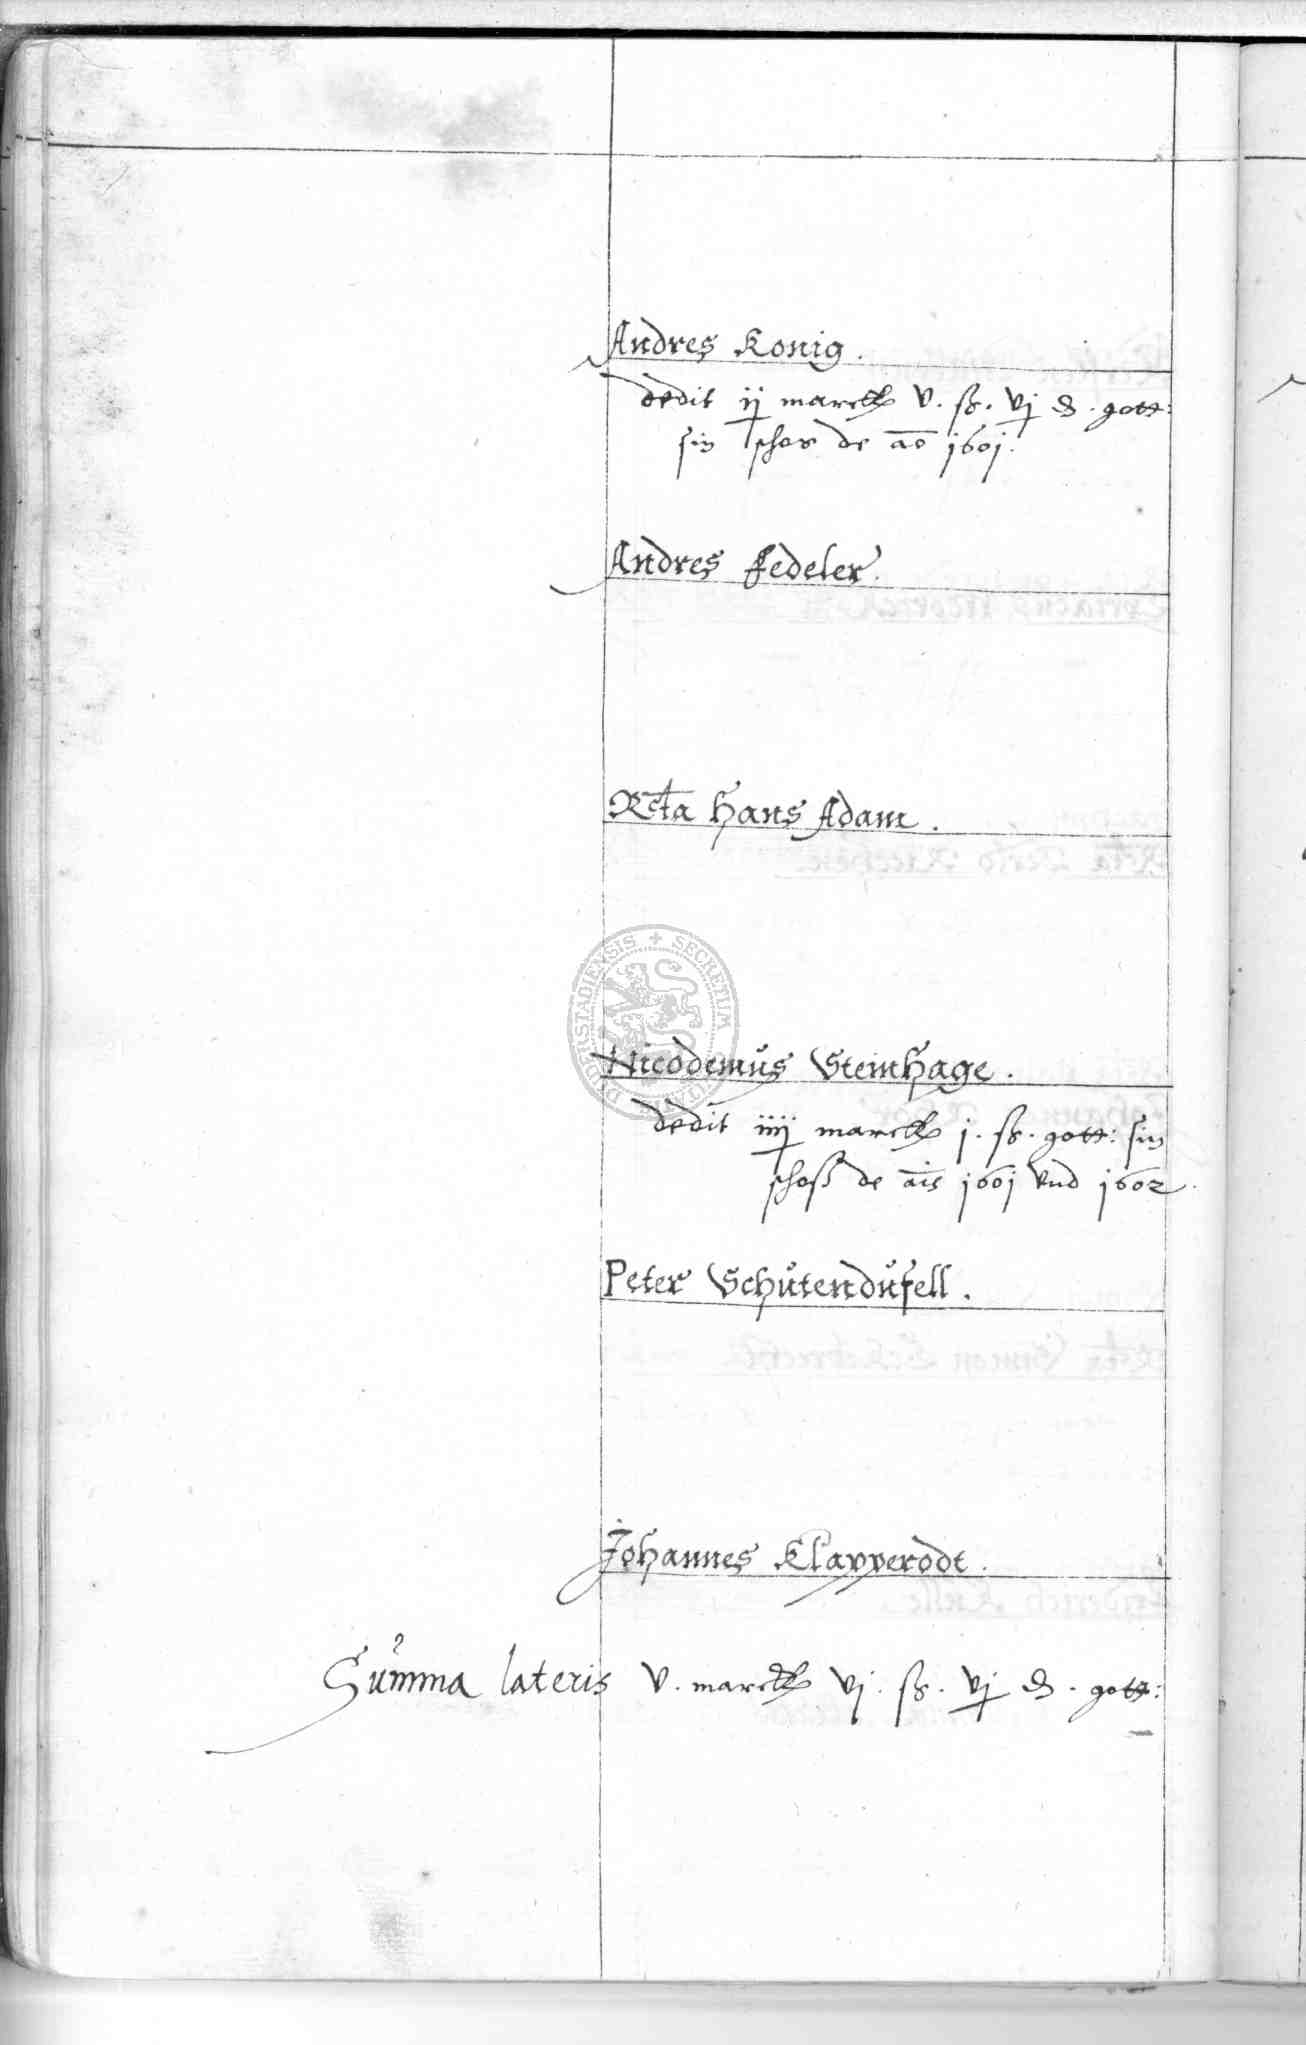 Andres Konig.
dedit ij marck v. ß. vj ₰. gott:
sin schos de ao 1601.
Andres Fedeler.
Rcta Hans Adam.
SECRETUM CIVITATIS DVDERSTADIENSIS
Nicodemus Steinhage.
dedit iiij marck j. ß. gott: sin
schoß de ais 1601 vnd 1602.
Peter Schutendufell.
Johannes Klapperodt.
Summa lateris v. marck vj. ß. vj ₰. gott: